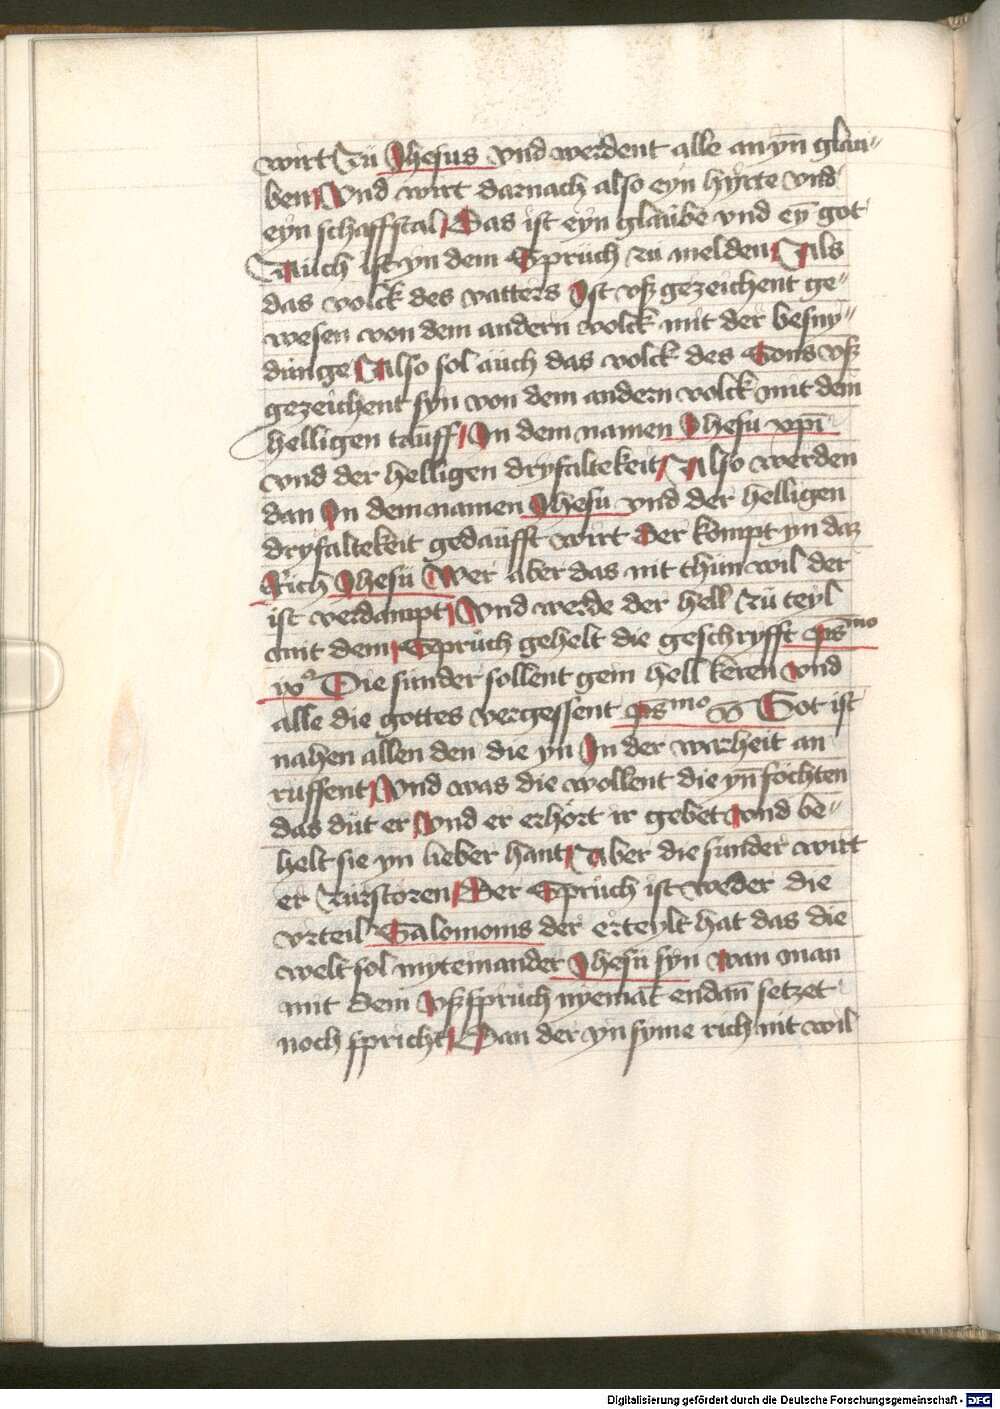 wirt zü Jhesus vnd werdent alle an yn̄ glau-
ben / Vnd wirt darnach also eyn hyrte vnd
eyn schaffstal / Das ist eyn glaube vnd eȳ got
Aüch ist yn dem Sprüch zu melden / Als
das volck des vatters Ist vß gezeichent ge-
wesen von dem andern volck mit der besny-
dünge / Also sol aüch das volck des Sons vß
gezeichent syn von dem andern volck mit dem
helligen taüff / Jn dem namen Jhesu xpī
vnd der helligen dryfaltekeit / Also werden
dan Jn dem namen Jhesü vnd der helligen
dryfaltekeit gedaüfft wirt Der kompt yn daz
Rich Jhesü Wer aber das nit thün wil der
ist verdampt / Vnd werde der hell zü teyl
mit dem / Sprüch gehelt die geschryfft ps mo
ix° Die sünder sollent gem hell keren vnd
alle die gottes vergessent ps mo Got ist
nahen allen den die yn Jn der warheit an
rüffent / Vnd was die wollent die yn̄ föchten
das düt er / Vnd er erhört ir gebet vnd be-
helt sie yn lieber hant / Aber die sünder wirt
er zürstoren / Der Sprüch ist weder die
vrteil Salomonis der erteylt hat das die
welt sol myteinander Jhesü syn wan man
mit dem vßsprüch nyemāt endan̄ setzet
noch spricht / Dan der yn syme rich nit wil
Digitalisierung gefördert durch die Deutsche Forschungsgemeinschaft - DFG